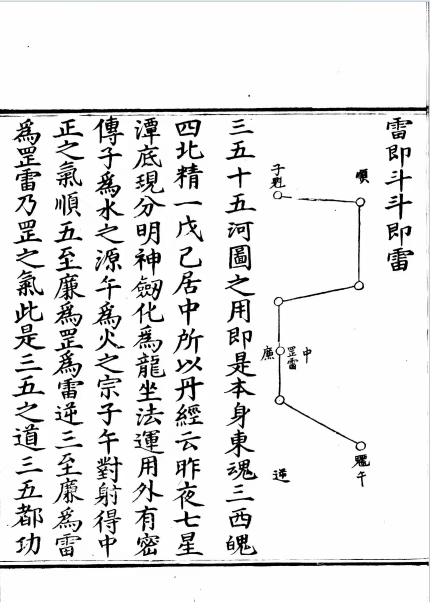 雷即斗斗即雷
順
子魁
中
罡雷
廉
午
逆
三五十五河圖之用即是本身東魂三西魄
四北精一戊己居中所以丹經云昨夜七星
潭底現分明神劔化為龍坐法運用外有密
傳子為水之源午為火之宗子午對射得中
正之氣順五至廉為罡為雷逆三至廉為雷
為罡雷乃罡之氣此是三五之道三五都功